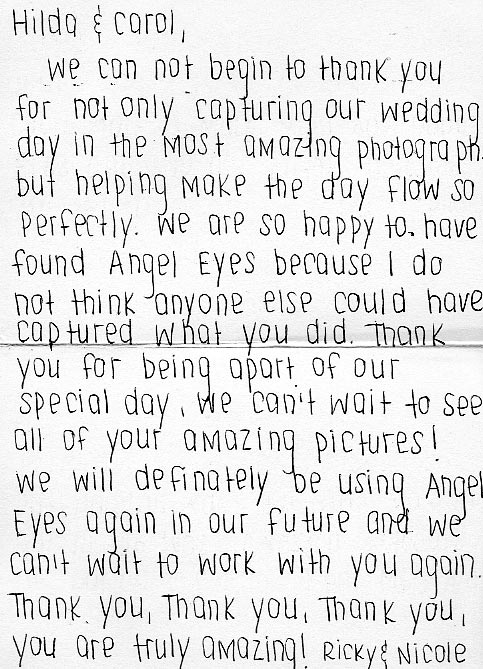 Hilda & Carol,
We can not begin to thank you
for not only capturing our wedding
day in the most amazing photograph
but helping make the day flow so
perfectly. We are so happy to have
found Angel Eyes because I do
not think anyone else could have
captured what you did. Thank
you for being apart of our
special day, we can't wait to see
all of your amazing pictures!
We will definately be using Angel
Eyes again in our future and we
can't wait to work with you again.
Thank you, Thank you, Thank you,
you are truly amazing! Ricky & Nicole